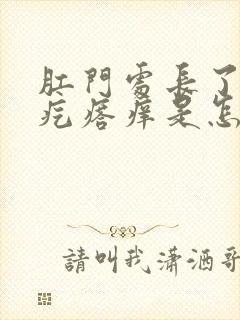 肛門處長了
疙瘩癢是怎
請叫我瀟洒哥